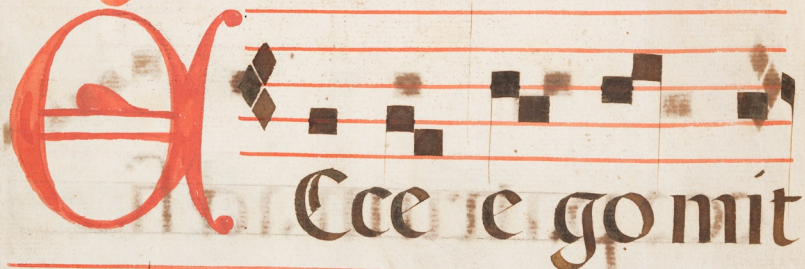 E Ecce e go mit